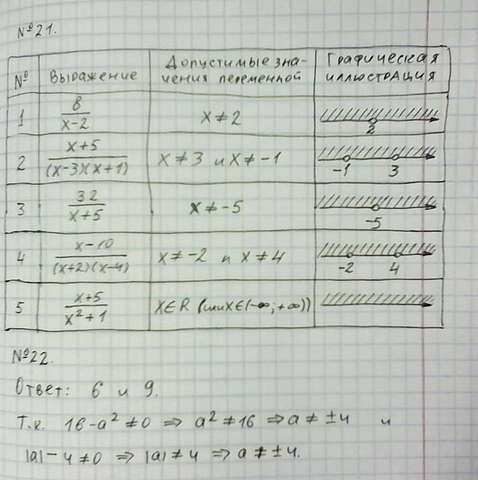 №21.
№ Выражение Допустимые зна-чения переменной Графическая иллюстрация
1 8/(x-2) x≠2 2
2 (x+5)/((x-3)(x+1)) x≠3 и x≠-1 -1 3
3 32/(x+5) x≠-5 -5
4 (x-10)/((x+2)(x-4)) x≠-2 и x≠4 -2 4
5 (x+5)/(x²+1) x∈R (или x∈(-∞;+∞))
№22.
Ответ: 6 и 9.
Т.к. 16-a²≠0 ⇒ a²≠16 ⇒ a≠±4 и
|a|-4≠0 ⇒ |a|≠4 ⇒ a≠±4.